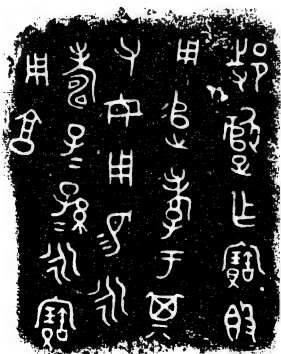 邿遣乍寶𣪘
用追孝于其
父母用易永
壽子=孫=永寶
用享